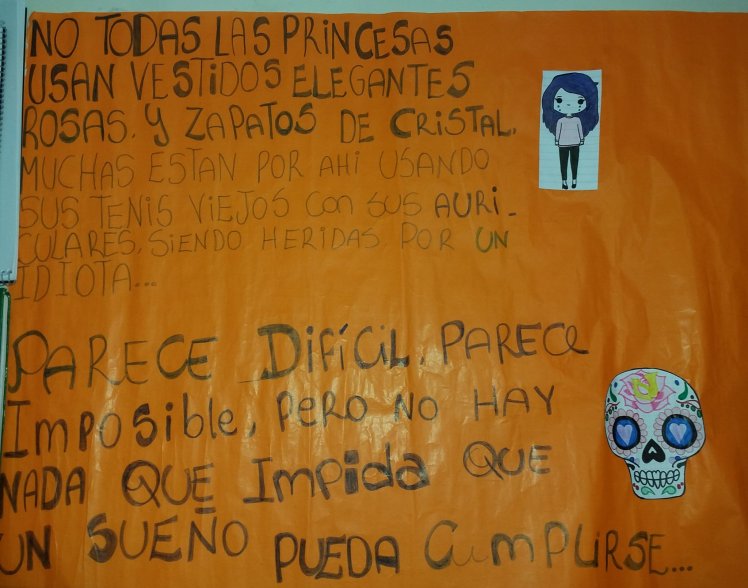 NO TODAS LAS PRINCESAS
USAN VESTIDOS ELEGANTES
ROSAS. Y ZAPATOS DE CRISTAL.
MUCHAS ESTAN POR AHI USANDO
SUS TENIS VIEJOS CON SUS AURI-
CULARES, SIENDO HERIDAS POR UN
IDIOTA...
PARECE DIFÍCIL. PARECE
IMPOSIBLE, PERO NO HAY
NADA QUE IMPIDA QUE
UN SUEÑO PUEDA CUMPLIRSE...